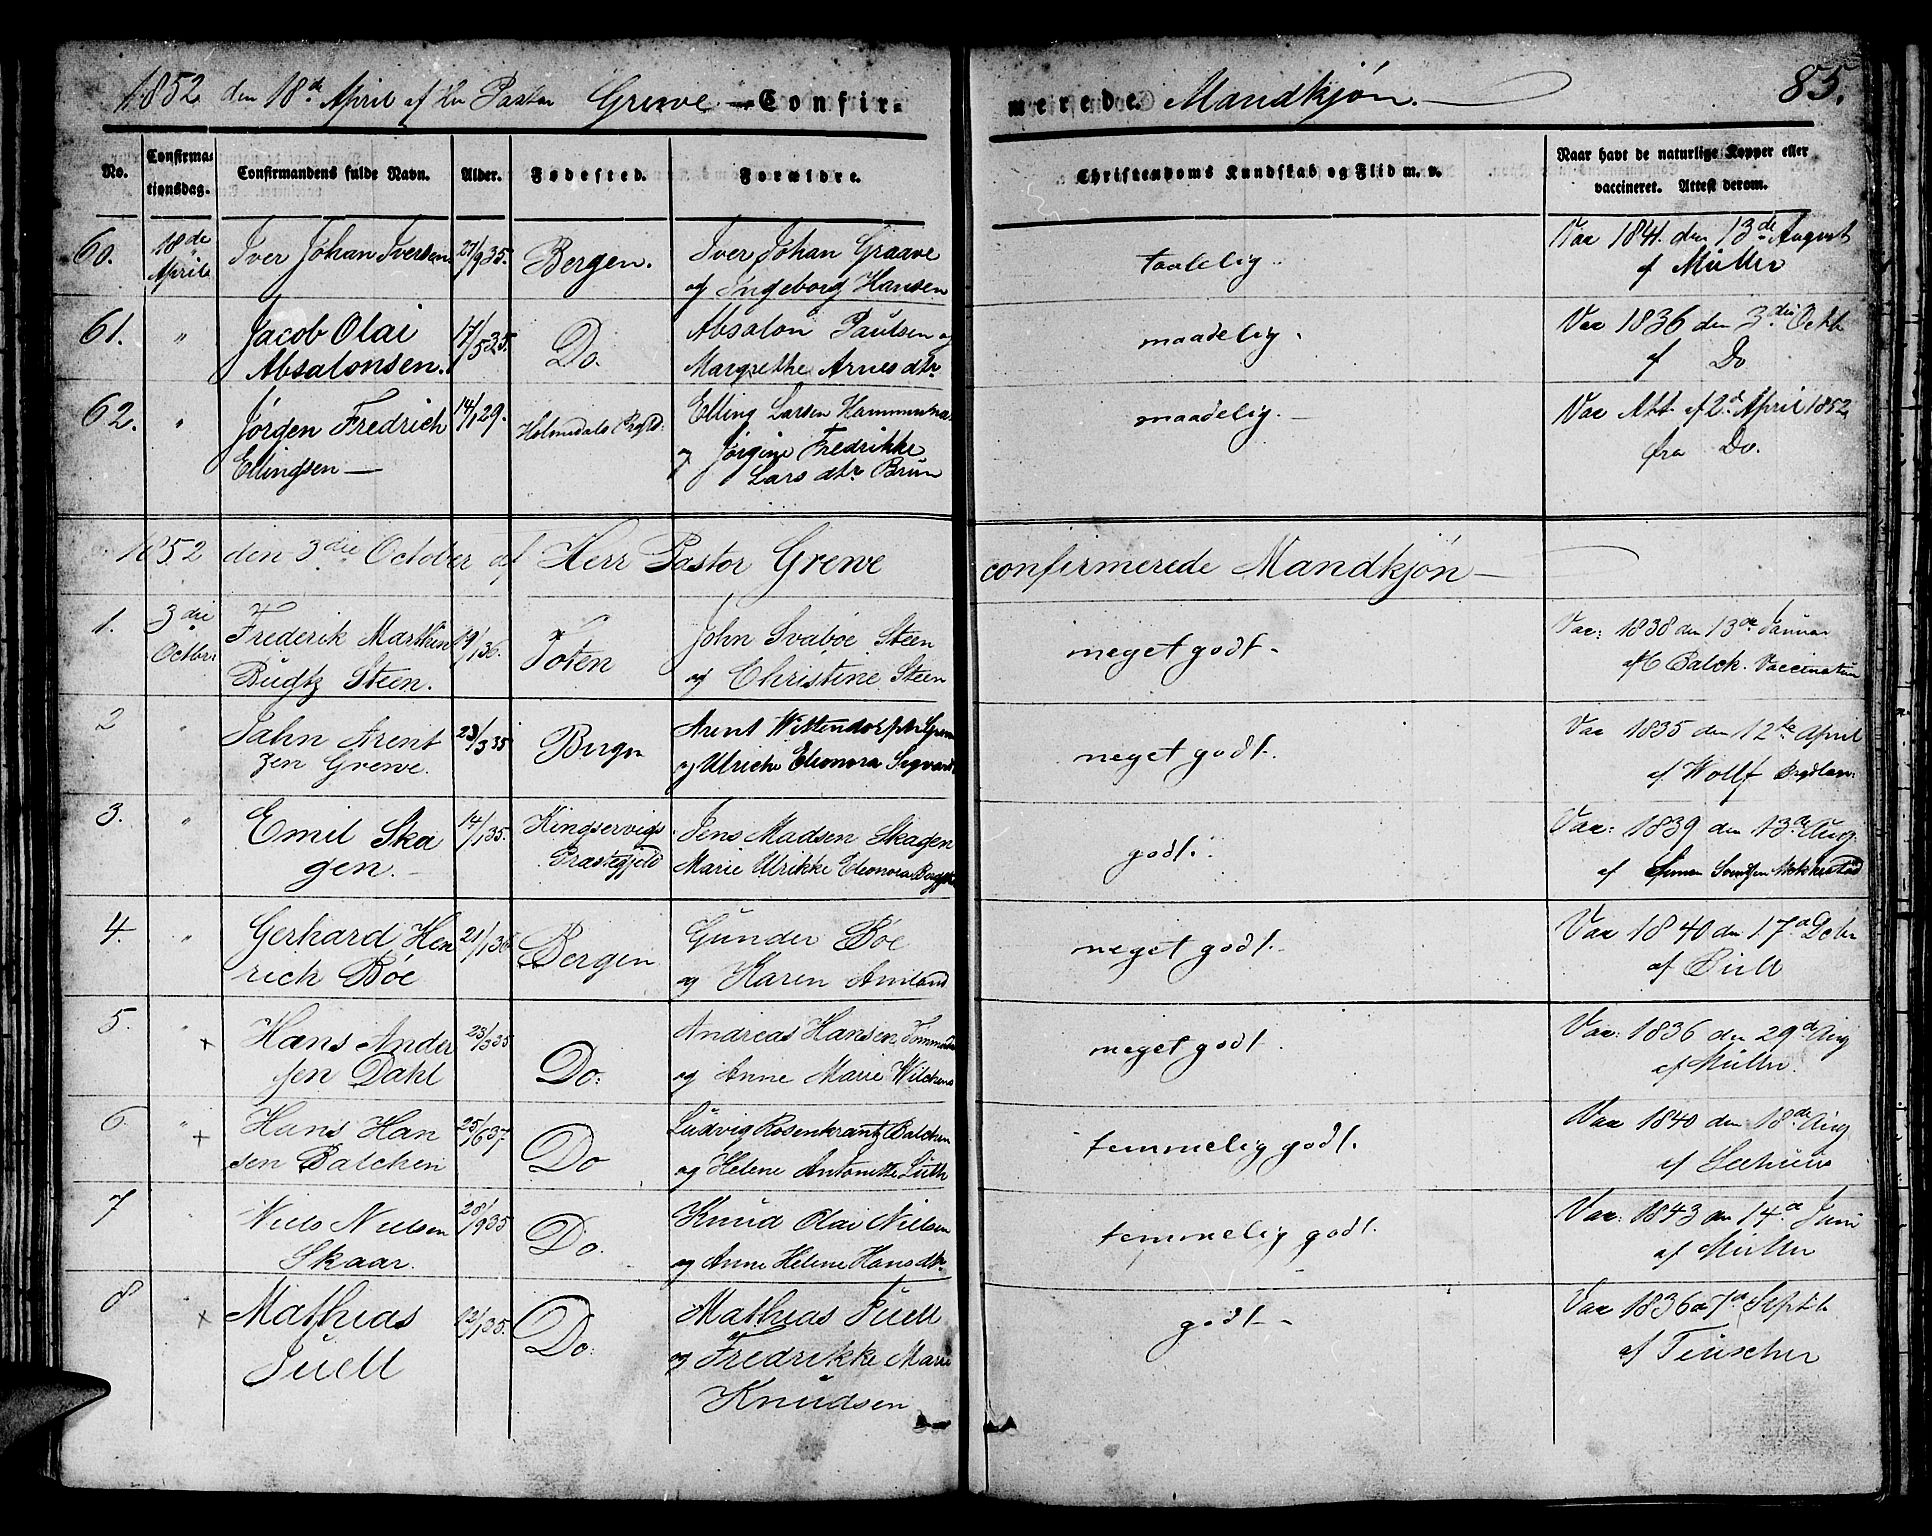 1852 den 18d April af Hr Pastor Grewe — Confirmerede Mandkjøn. — 85.
No.
Confirmationsdag.
Confirmandens fulde Navn.
Alder.
Fødested.
Forældre.
Christendoms Kundskab og Flid m. v.
Naar havt de naturlige Kopper eller
vaccineret. Attest derom.
60. 18de April Iver Johan Iversen 27/9 35. Bergen. Iver Johan Graave
og Ingeborg Hansen
taalelig.
Vac 1841. den 13de August
af Müller
61. " Jacob Olai
Absalonsen. 17/5 35. Do. Absalon Paulsen og
Margrethe Arnesdtr
maadelig.
Vac 1836 den 3die Octb
af Do
62. " Jørgen Fredrich
Ellingsen — 14/1 29. Holmedals Prgld: Elling Larsen
og Jørgine Fredrikke
Lars dtr Brun
maadelig. —
Vac Att. af 2d April 1852
fra Do.
1852 den 3die October af Herr Pastor Grewe confirmerede Mandkjøn —
1. 3die Octbr Frederik Marthin
Budtz Steen. 19/1 36. Toten John Svaboe Steen
og Christine Steen
meget godt -
Vac: 1838 den 13de Januar
af C Balck. Vaccinatum
2 " Jahn Arent
zen Grewe. 23/3 35 Bergen Arent Wittendorph Grewe
og Ulriche Eleonora
meget godt.
Vac 1835 den 12te April
af Wolff
3. " Emil Ska
gen. 14/1 35. Kingservigs
Præstegjeld Jens Madsen Skagen
Marie Ulrikke Eleonora
godt.
Vac: 1839 den 13de Aug
af Simen
4. " Gerhard Hen
rich Böe 21/1 36 Bergen Gunder Böe
og Karen Amland
meget godt.
Vac 1840 den 17d Octbr
af
5. " + Hans Ander
sen Dahl 23/3 35 Do: Andreas Hansen
og Anne Marie Wilchens
meget godt.
Vac: 1836 den 29d Aug
af Müller.
6. " + Hans Han
sen Balchen 25/6 37. Do Ludvig Rosenkrantz Balchen
og Helene Antonette Lüth
temmelig godt.
Vac 1840 den 18de Aug
af
7 Niels Nielsen
Skaar. 28/9 35 Do. Knud Olai Nielsen
og Anne Helene Hansdtr.
temmelig godt.
Vac: 1843 den 14d Juni
af Müller
8 + Mathias
Juell 12/1 35. Do: Mathias Juell
og Fredrikke Marie
Knudsen
godt -
Vac 1836 7d Septb
af Teuscher